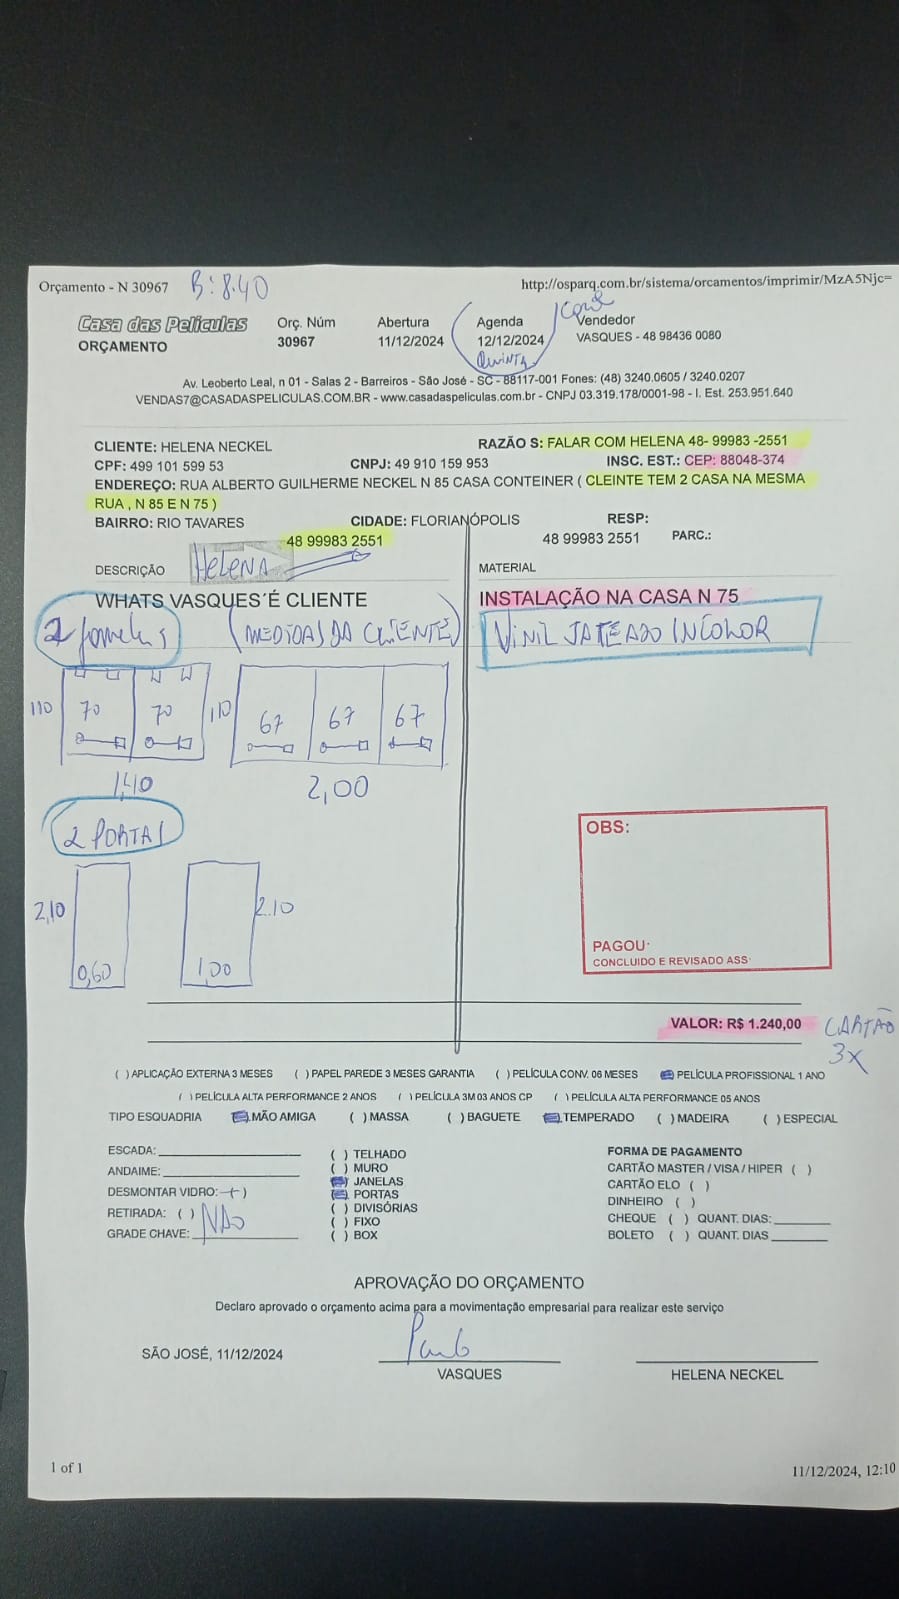 Orçamento - N 30967 B: 8.40 http://osparq.com.br/sistema/orcamentos/imprimir/MzA5Njc=
Casa das Películas Orç. Núm Abertura Agenda Vendedor
ORÇAMENTO 30967 11/12/2024 12/12/2024 VASQUES - 48 98436 0080
QUINTA
Av. Leoberto Leal, n 01 - Salas 2 - Barreiros - São José - SC - 88117-001 Fones: (48) 3240.0605 / 3240.0207
VENDAS7@CASADASPELICULAS.COM.BR - www.casadaspeliculas.com.br - CNPJ 03.319.178/0001-98 - I. Est. 253.951.640
CLIENTE: HELENA NECKEL RAZÃO S: FALAR COM HELENA 48- 99983 -2551
CPF: 499 101 599 53 CNPJ: 49 910 159 953 INSC. EST.: CEP: 88048-374
ENDEREÇO: RUA ALBERTO GUILHERME NECKEL N 85 CASA CONTEINER ( CLEINTE TEM 2 CASA NA MESMA
RUA , N 85 E N 75 )
BAIRRO: RIO TAVARES CIDADE: FLORIANÓPOLIS RESP:
48 99983 2551 48 99983 2551 PARC.:
DESCRIÇÃO HELENA MATERIAL
WHATS VASQUES´É CLIENTE INSTALAÇÃO NA CASA N 75
2 (MEDIDAS DA CLIENTE) VINIL JATEADO INCOLOR
110 70 70 1,10 67 67 67
1,40 2,00
2 PORTAS
2,10 2.10
0,60 1,00
OBS:
PAGOU:
CONCLUIDO E REVISADO ASS:
VALOR: R$ 1.240,00 CARTÃO
3X
( ) APLICAÇÃO EXTERNA 3 MESES ( ) PAPEL PAREDE 3 MESES GARANTIA ( ) PELÍCULA CONV. 06 MESES PELÍCULA PROFISSIONAL 1 ANO
( ) PELÍCULA ALTA PERFORMANCE 2 ANOS ( ) PELÍCULA 3M 03 ANOS CP ( ) PELÍCULA ALTA PERFORMANCE 05 ANOS
TIPO ESQUADRIA MÃO AMIGA ( ) MASSA ( ) BAGUETE TEMPERADO ( ) MADEIRA ( ) ESPECIAL
ESCADA: ( ) TELHADO FORMA DE PAGAMENTO
ANDAIME: ( ) MURO CARTÃO MASTER / VISA / HIPER ( )
DESMONTAR VIDRO: ( ) JANELAS CARTÃO ELO ( )
PORTAS DINHEIRO ( )
RETIRADA: ( ) NÃO ( ) DIVISÓRIAS CHEQUE ( ) QUANT. DIAS:
( ) FIXO
GRADE CHAVE: ( ) BOX BOLETO ( ) QUANT. DIAS
APROVAÇÃO DO ORÇAMENTO
Declaro aprovado o orçamento acima para a movimentação empresarial para realizar este serviço
SÃO JOSÉ, 11/12/2024 Paulo
VASQUES HELENA NECKEL
1 of 1 11/12/2024, 12:10